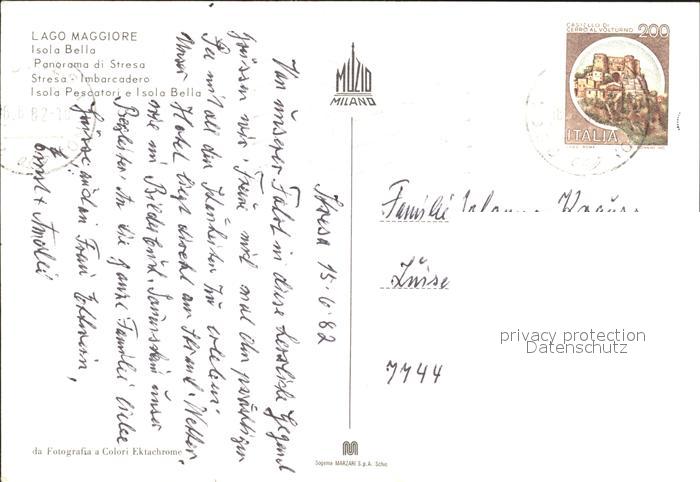 LAGO MAGGIORE
Isola Bella
Panorama di Stresa
Stresa - Imbarcadero
Isola Pescatori e Isola Bella
MUZIO
MILANO
CASTELLO DI
CERRO AL VOLTURNO
200
ITALIA
Stresa 15.6.82
Von unserer Fahrt in diese herrliche Gegend
grüssen wir. Freue mich mal den prächtigen
See mit all den Schönheiten zu erleben.
Unser Hotel liegt direkt am Strand. Wetter
wie im Bilderbuch. Sonnenschein unser
Begleiter. An die ganze Familie liebe
Grüsse
Frau
Ernst +
Familie
7744
privacy protection
Datenschutz
da Fotografia a Colori Ektachrome
Sogema MARZARI S.p.A. Schio